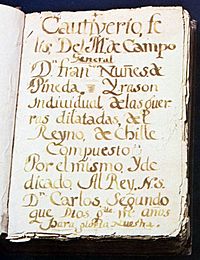 Cautiverio, fe
lis. Del M.e de Campo
General
D.n fran.co Nuñes de
Pineda, Y rason
Indiuidual, de las guer
ras dilatadas, del
Reyno, de Chille
Compuesto
Por el mismo, Y de
dicado. Al Rey. N. S.
D.n Carlos, Segundo
que Dios g.de m.s años
para gloria nuestra.